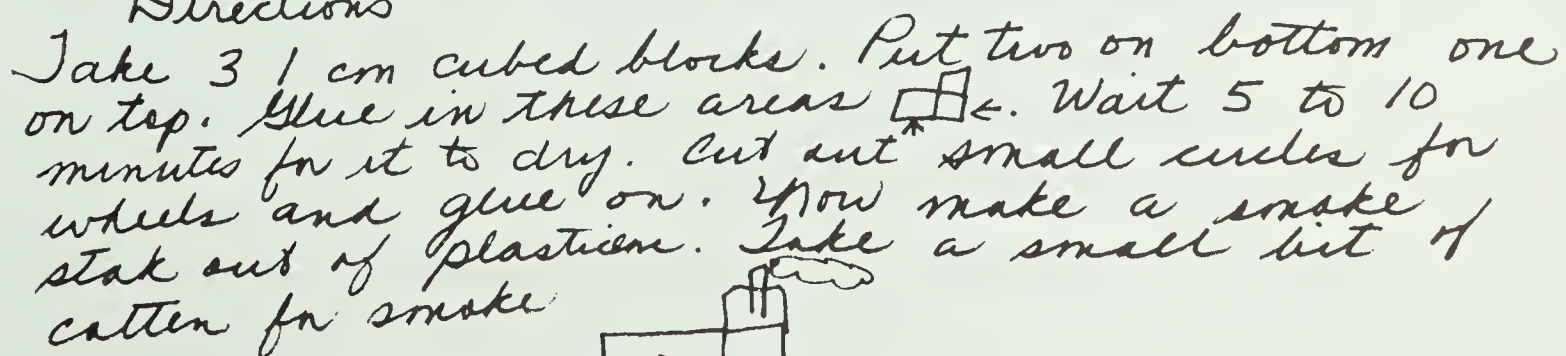 Directions
Take 3 1 cm cubed blocks. Put two on bottom one
on top. Glue in these areas . Wait 5 to 10
minutes for it to dry. Cut out small circles for
wheels and glue on. Now make a smoke
stak out of plasticene. Take a small bit of
catten for smoke